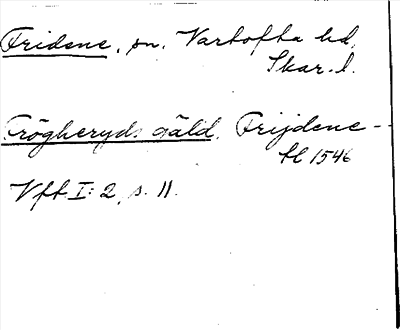 Fridene, sn. Vartofta hd,
Skar. l.
Frögheryds gäld, Frijdene -
hl 1546
Vft I: 2, s. 11.